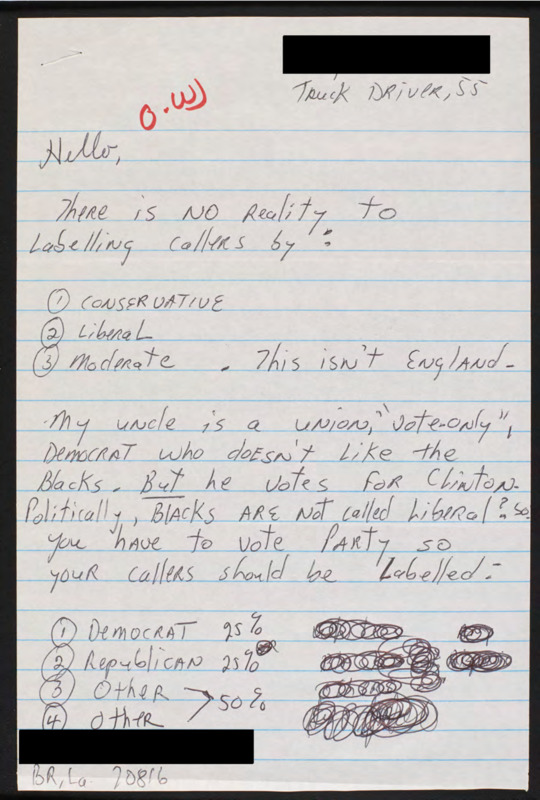 Truck Driver, 55
O.W
Hello,
There is NO Reality to
Labelling callers by:
① CONSERVATIVE
② Liberal
③ Moderate . This isn't England-
My uncle is a union, "vote-only",
Democrat who doesn't like the
Blacks. But he votes for Clinton.
Politically, Blacks are not called Liberal? so
you have to vote Party so
your callers should be Labelled:
① Democrat 25%
② Republican 25%
③ Other
④ Other > 50%
BR, La. 70816